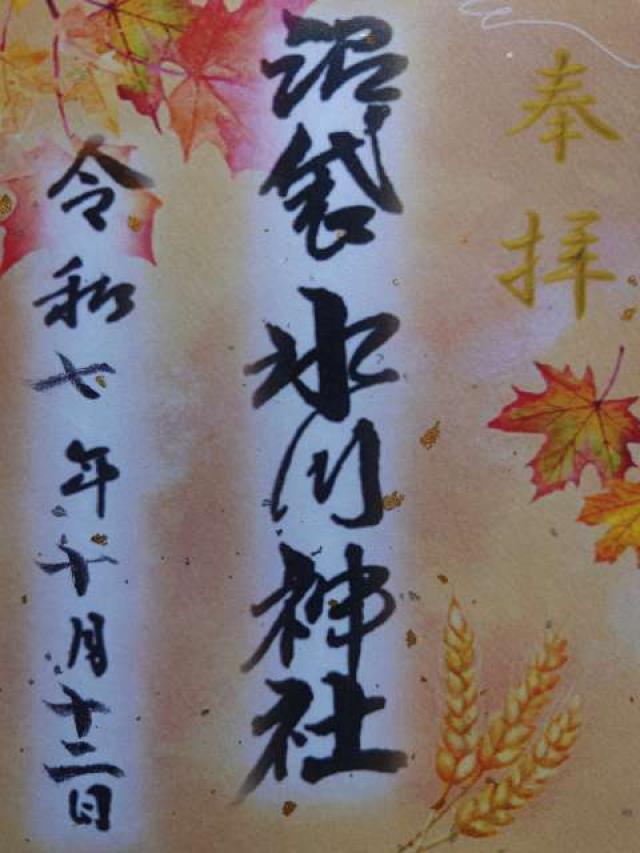 奉拝
沼袋氷川神社
令和七年十月十二日